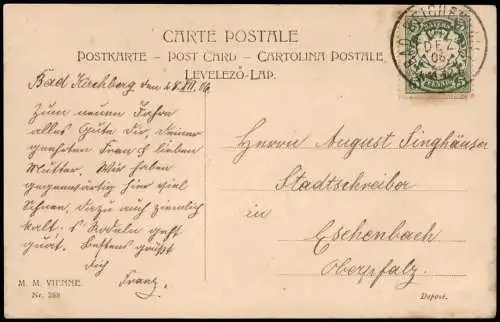 CARTE POSTALE
POSTKARTE – POST CARD – CARTOLINA POSTALE
LEVELEZŐ-LAP.
BAYERN
5 PFENNIG 5
DEZ
06
Bad Kirchberg den 28.XII.06.
Zum neuen Jahre
alles Gute dir, deiner
geehrten Frau & lieben
Mutter. Wir haben
gegenwärtig hier viel
Schnee, dazu auch ziemlich
kalt. s' Rodeln geht
guat. Bestens grüßt
dich
Franz.
Herrn August Singhäuser
Stadtschreiber
in
Eschenbach
Oberpfalz.
M. M. VIENNE.
Nr. 288
Deposé.